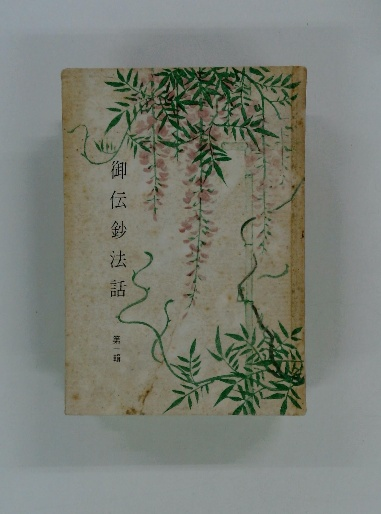 御伝鈔法話
第一輯